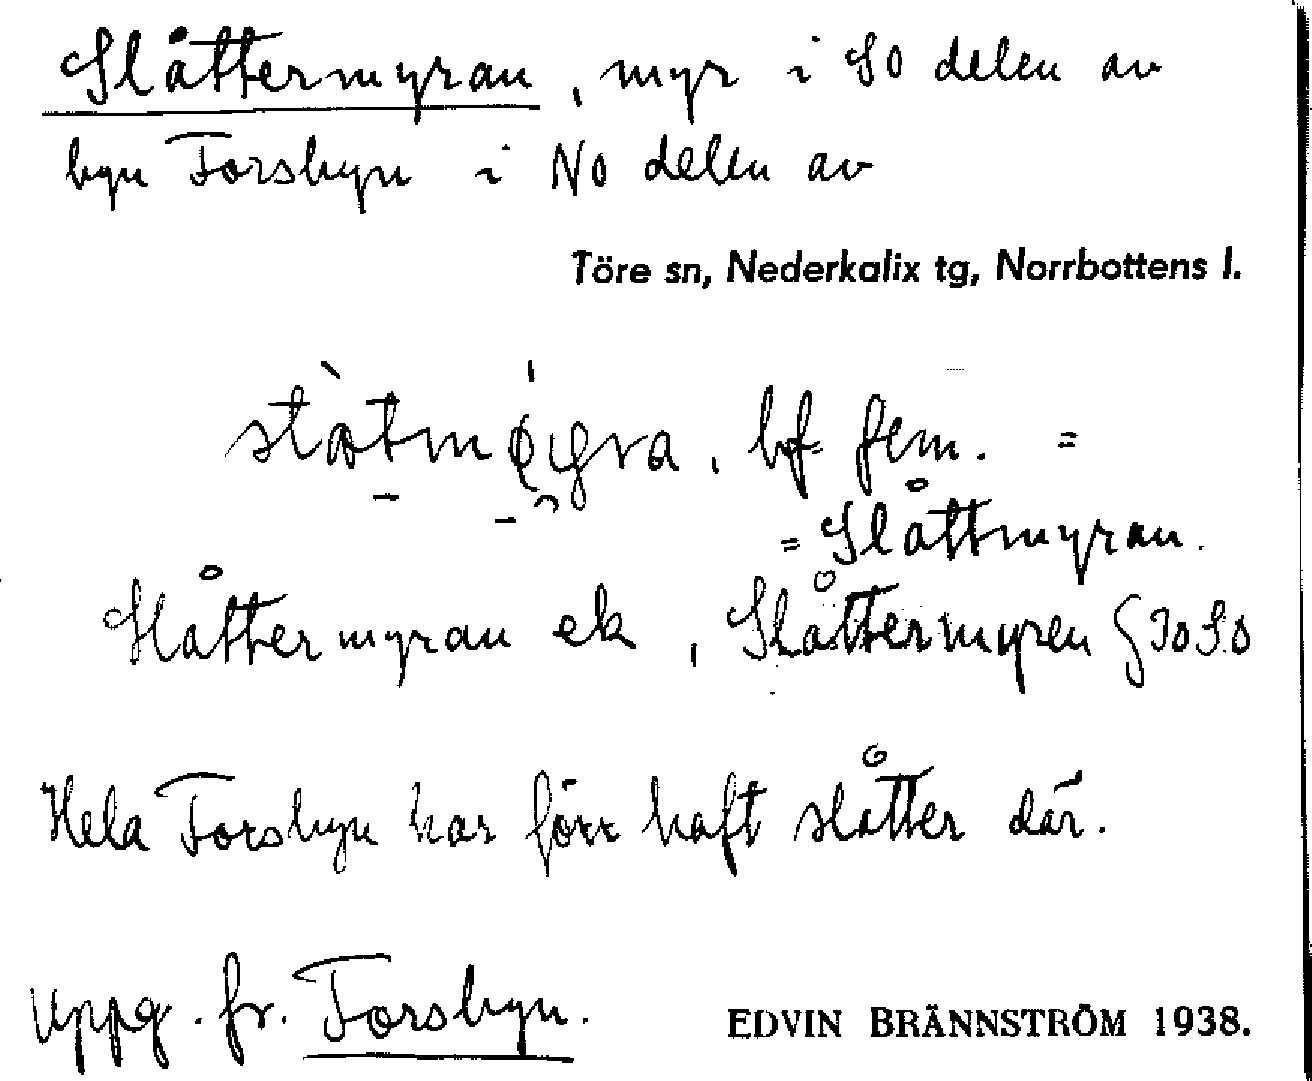 Slåttermyran, myr i SO delen av
byn Forsbyn i NO delen av
Töre sn, Nederkalix tg, Norrbottens l.
bf fem. =
= Slåttmyran.
Slåttermyran ek, Slåttermyren
Hela Forsbyn har förr haft slåtter där.
Uppg. fr. Forsbyn.
EDVIN BRÄNNSTRÖM 1938.